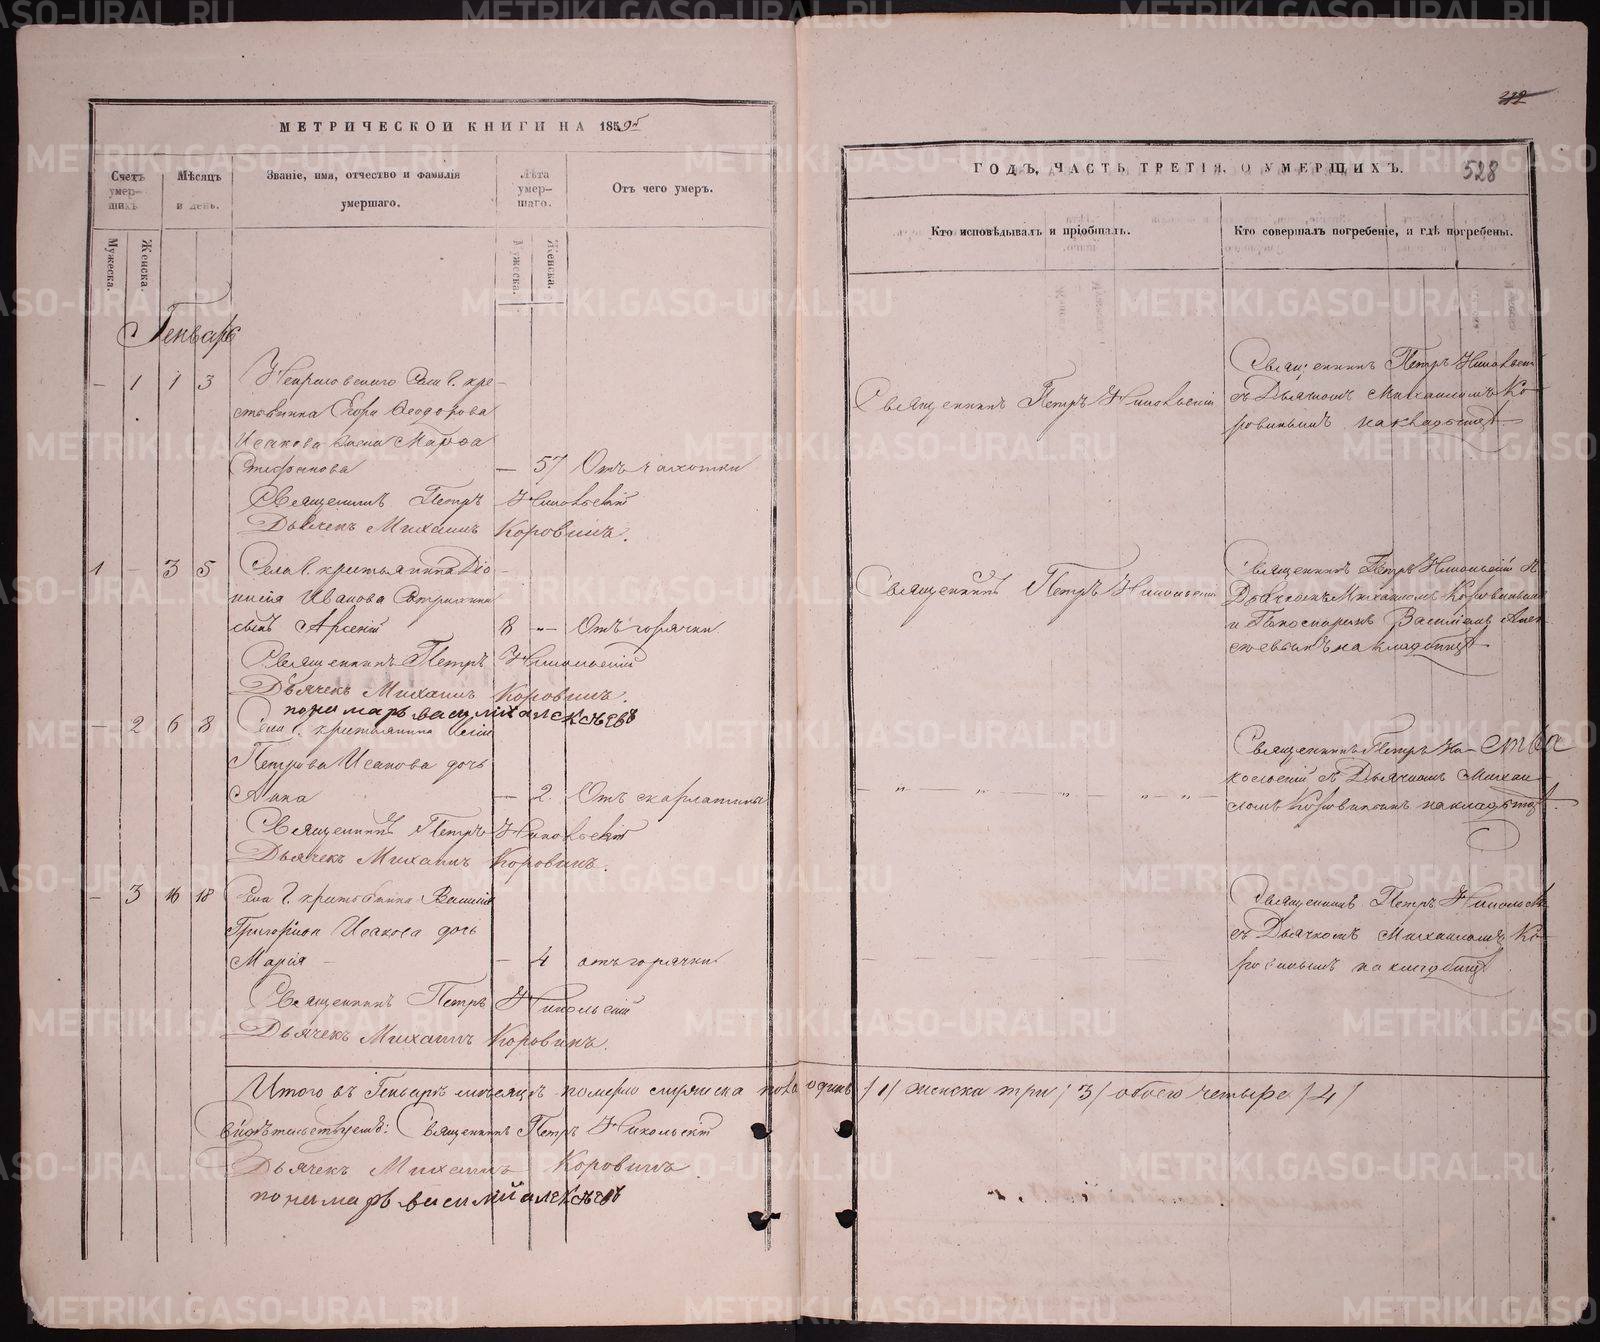 МЕТРИЧЕСКОЙ КНИГИ НА 1859
ГОДЪ, ЧАСТЬ ТРЕТІЯ, О УМЕРШИХЪ.
528
Счетъ умер-
шихъ
Мѣсяцъ
и день.
Званіе, имя, отчество и фамилія
умершаго.
Лѣта
умер-
шаго.
Отъ чего умеръ.
Кто исповѣдывалъ и пріобщалъ.
Кто совершалъ погребеніе, и гдѣ погребены.
Мужеска.
Женска.
Мужеска.
Женска.
Генварь
— 1 1 3
Села С. кре-
стьянина Егора Ѳеодорова
Исакова жена Марѳа
— 57 Отъ чахотки
Священникъ Петръ Никольскій
Дьячекъ Михаилъ Коровинъ.
Священникъ Петръ Никольскій
Священникъ Петръ Никольскій
съ Дьячкомъ Михаиломъ Ко-
ровинымъ на кладбищѣ
1 — 3 5
Села С. крестьянина Діо-
нисія Иванова
сынъ Арсеній 8 — Отъ горячки
Священникъ Петръ Никольскій
Дьячекъ Михаилъ Коровинъ.
пономарь василій алексѣевъ
Священникъ Петръ Никольскій
Священникъ Петръ Никольскій съ
Дьячкомъ Михаиломъ Коровинымъ
и Пономаремъ Василіемъ Алек-
сѣевымъ на кладбищѣ
— 2 6 8
Села С. крестьянина
Петрова Исакова дочь
Анна — 2 Отъ скарлатины
Священникъ Петръ Никольскій
Дьячекъ Михаилъ Коровинъ.
— „ — „ — „ — „ — „
Священникъ Петръ Ни-
кольскій съ Дьячкомъ Михаи-
ломъ Коровинымъ на кладбищѣ.
— 3 16 18
Села С. крестьянина Василія
Григорьева Исакова дочь
Марія — — 4 отъ горячки
Священникъ Петръ Никольскій
Дьячекъ Михаилъ Коровинъ.
Священникъ Петръ Никольскій
съ Дьячкомъ Михаиломъ Ко-
ровинымъ на кладбищѣ
Итого въ Генварѣ мѣсяцѣ померло мужеска пола одинъ /1/ женска три /3/ обоего четыре /4/
Свидѣтельствуемъ: Священникъ Петръ Никольскій
Дьячекъ Михаилъ Коровинъ
пономарь василій алексѣевъ
METRIKI.GASO-URAL.RU